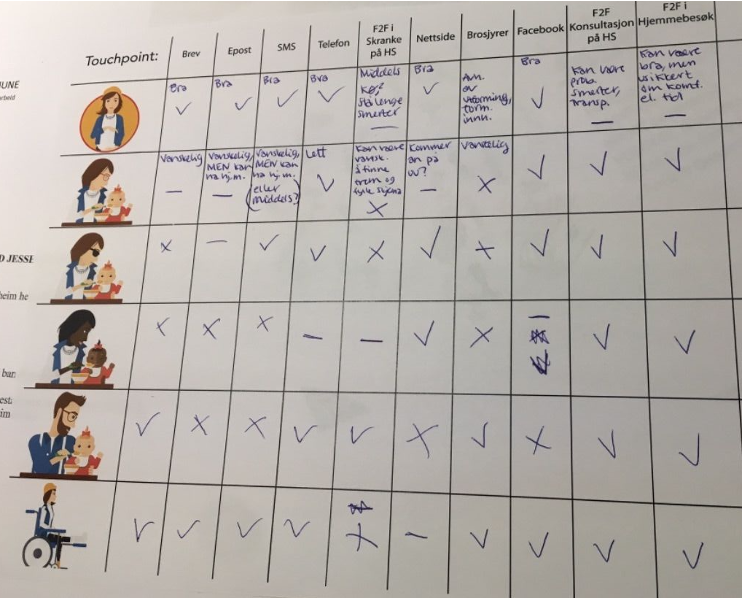 Touchpoint:
Brev
Epost
SMS
Telefon
F2F i
Skranke
på HS
Nettside
Brosjyrer
Facebook
F2F
Konsultasjon
på HS
F2F i
Hjemmebesøk
JUNE
arbeid
Bra
Bra
Bra
Bra
Middels
Kø,
stå lenge
smerter
Bra
Avh.
av
utforming,
form.
innh.
Bra
Kan være
prob.
smerter,
transp.
Kan være
bra, men
usikkert
om komf.
el. tid
Vanskelig
Vanskelig,
MEN kan
ha hj.m.
Vanskelig,
MEN kan
ha hj.m.
(eller
middels?)
Lett
Kan være
vansk.
å finne
frem og
fylle skjema
Kommer
an på
uu?
Vanskelig
D JESSE
heim he
bar
est:
im